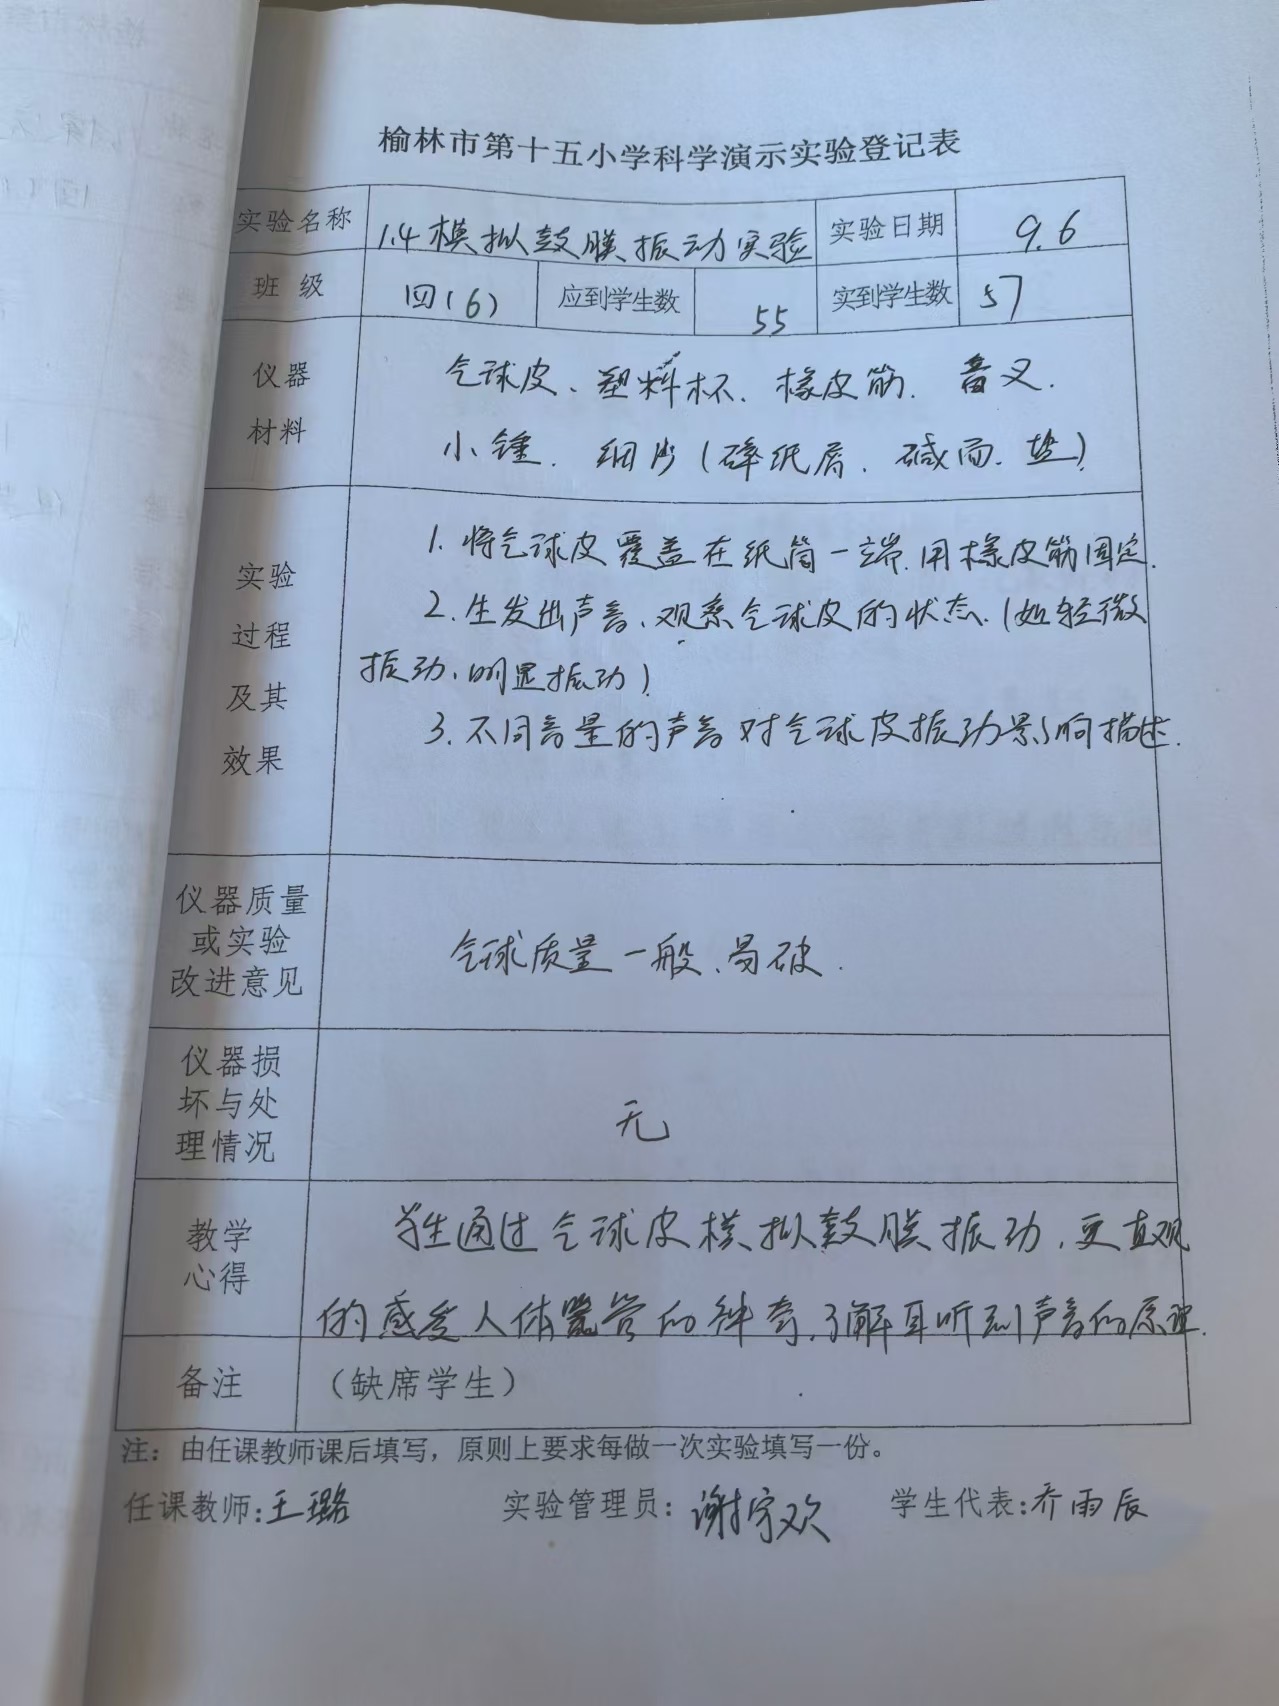 榆林市第十五小学科学演示实验登记表
实验名称 1.4模拟鼓膜振动实验 实验日期 9.6
班 级 四(6) 应到学生数 55 实到学生数 57
仪器 气球皮、塑料杯、橡皮筋、音叉、
材料 小锤、细沙(碎纸屑、碱面、盐)
实验 1.将气球皮覆盖在纸筒一端,用橡皮筋固定.
过程 2.生发出声音、观察气球皮的状态.(如轻微
及其 振动、明显振动)
效果 3.不同音量的声音对气球皮振动影响描述.
仪器质量
或实验 气球质量一般、易破.
改进意见
仪器损
坏与处 无
理情况
教学 学生通过气球皮模拟鼓膜振动,更直观
心得 的感受人体器官的神奇,了解耳听到声音的原理.
备注 (缺席学生)
注：由任课教师课后填写，原则上要求每做一次实验填写一份。
任课教师:王璐 实验管理员: 谢宇欢 学生代表:乔雨辰